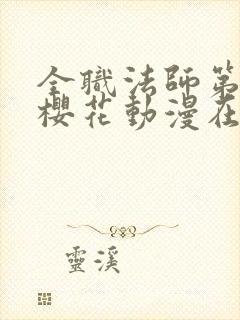 全職法師第
櫻花動漫在
靈溪